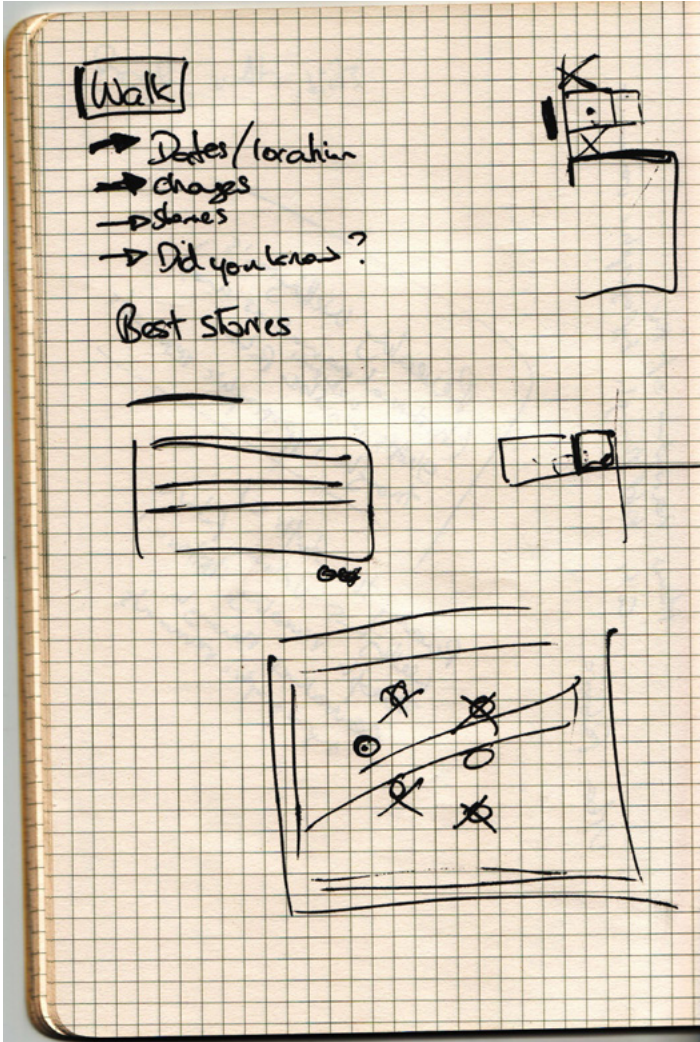 Walk
Dates/location
changes
stories
Did you know?
Best stories